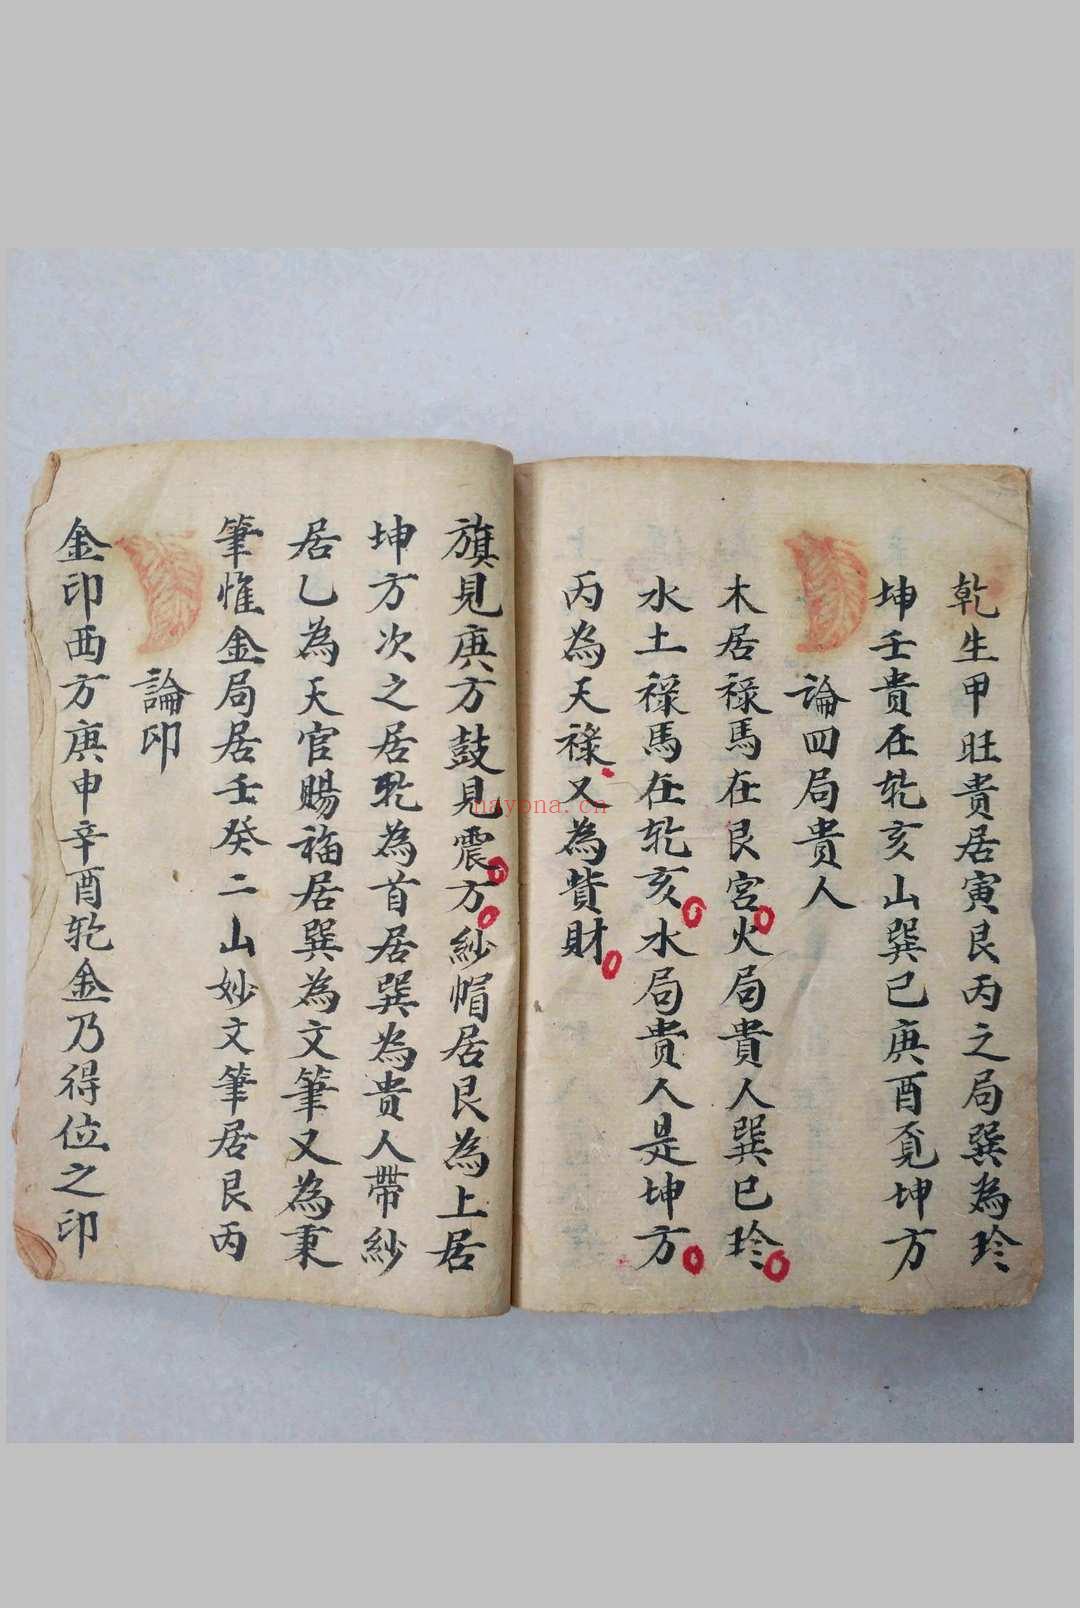 乾生甲旺貴居寅艮丙之局巽為珍
坤壬貴在乹亥山巽巳庚酉覓坤方
論四局貴人
木居祿馬在艮宮火局貴人巽巳珍
水土祿馬在乹亥水局貴人是坤方
丙為天祿又為貲財
旗見庚方鼓見震方紗帽居艮為上居
坤方次之居乹為首居巽為貴人帶紗
居乙為天官賜福居巽為文筆又為秉
筆惟金局居壬癸二山妙文筆居艮丙
論印
金印西方庚申辛酉乹金乃得位之印
nayona.cn